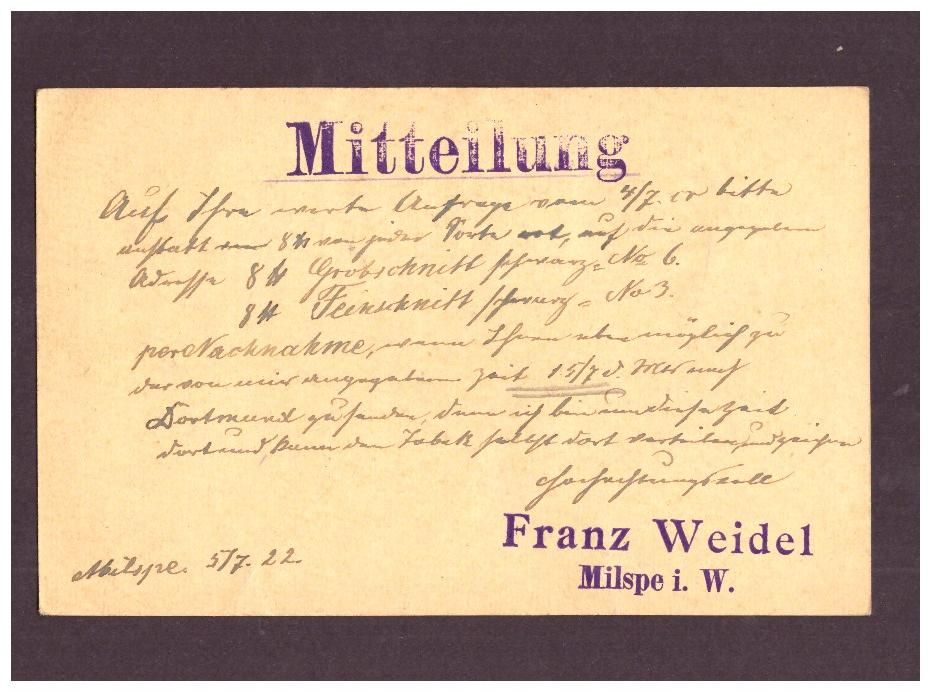 Mitteilung
Auf Ihre werte Anfrage vom 4/7. cr bitte
anstatt 8 ℔ von jeder Sorte, auf die angegebene
Adresse 8 ℔ Grobschnitt schwarz = No 6.
8 ℔ Feinschnitt schwarz = No 3.
per Nachnahme, wenn Ihnen eben möglich zu
der von mir angegebenen Zeit 15/7 d. Mts nach
Dortmund zu senden, denn ich bin um diese Zeit
dort und kann den Tabak selbst dort verteilen und
Hochachtungsvoll
Franz Weidel
Milspe i. W.
Milspe. 5/7. 22.